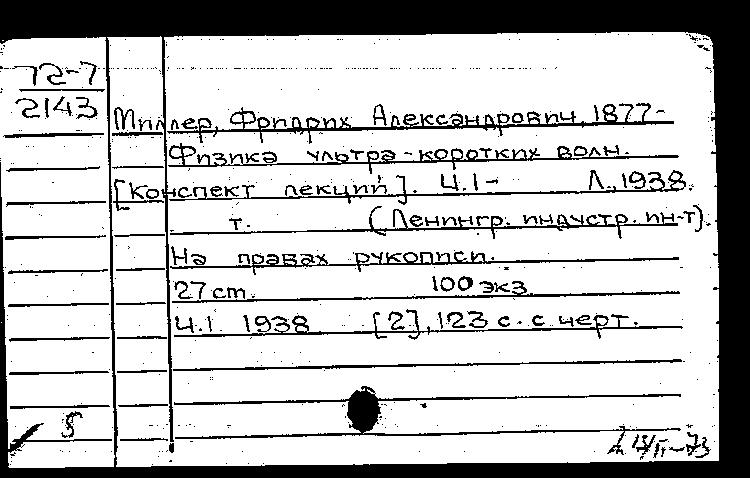 72-7
2143
Миллер, Фридрих Александрович, 1877-
Физика ультра-коротких волн.
[Конспект лекций]. Ч.1- Л., 1938.
т. (Ленингр. индустр. ин-т).
На правах рукописи.
27 cm. 100 экз.
Ч.1 1938 [2], 123 с. с черт.